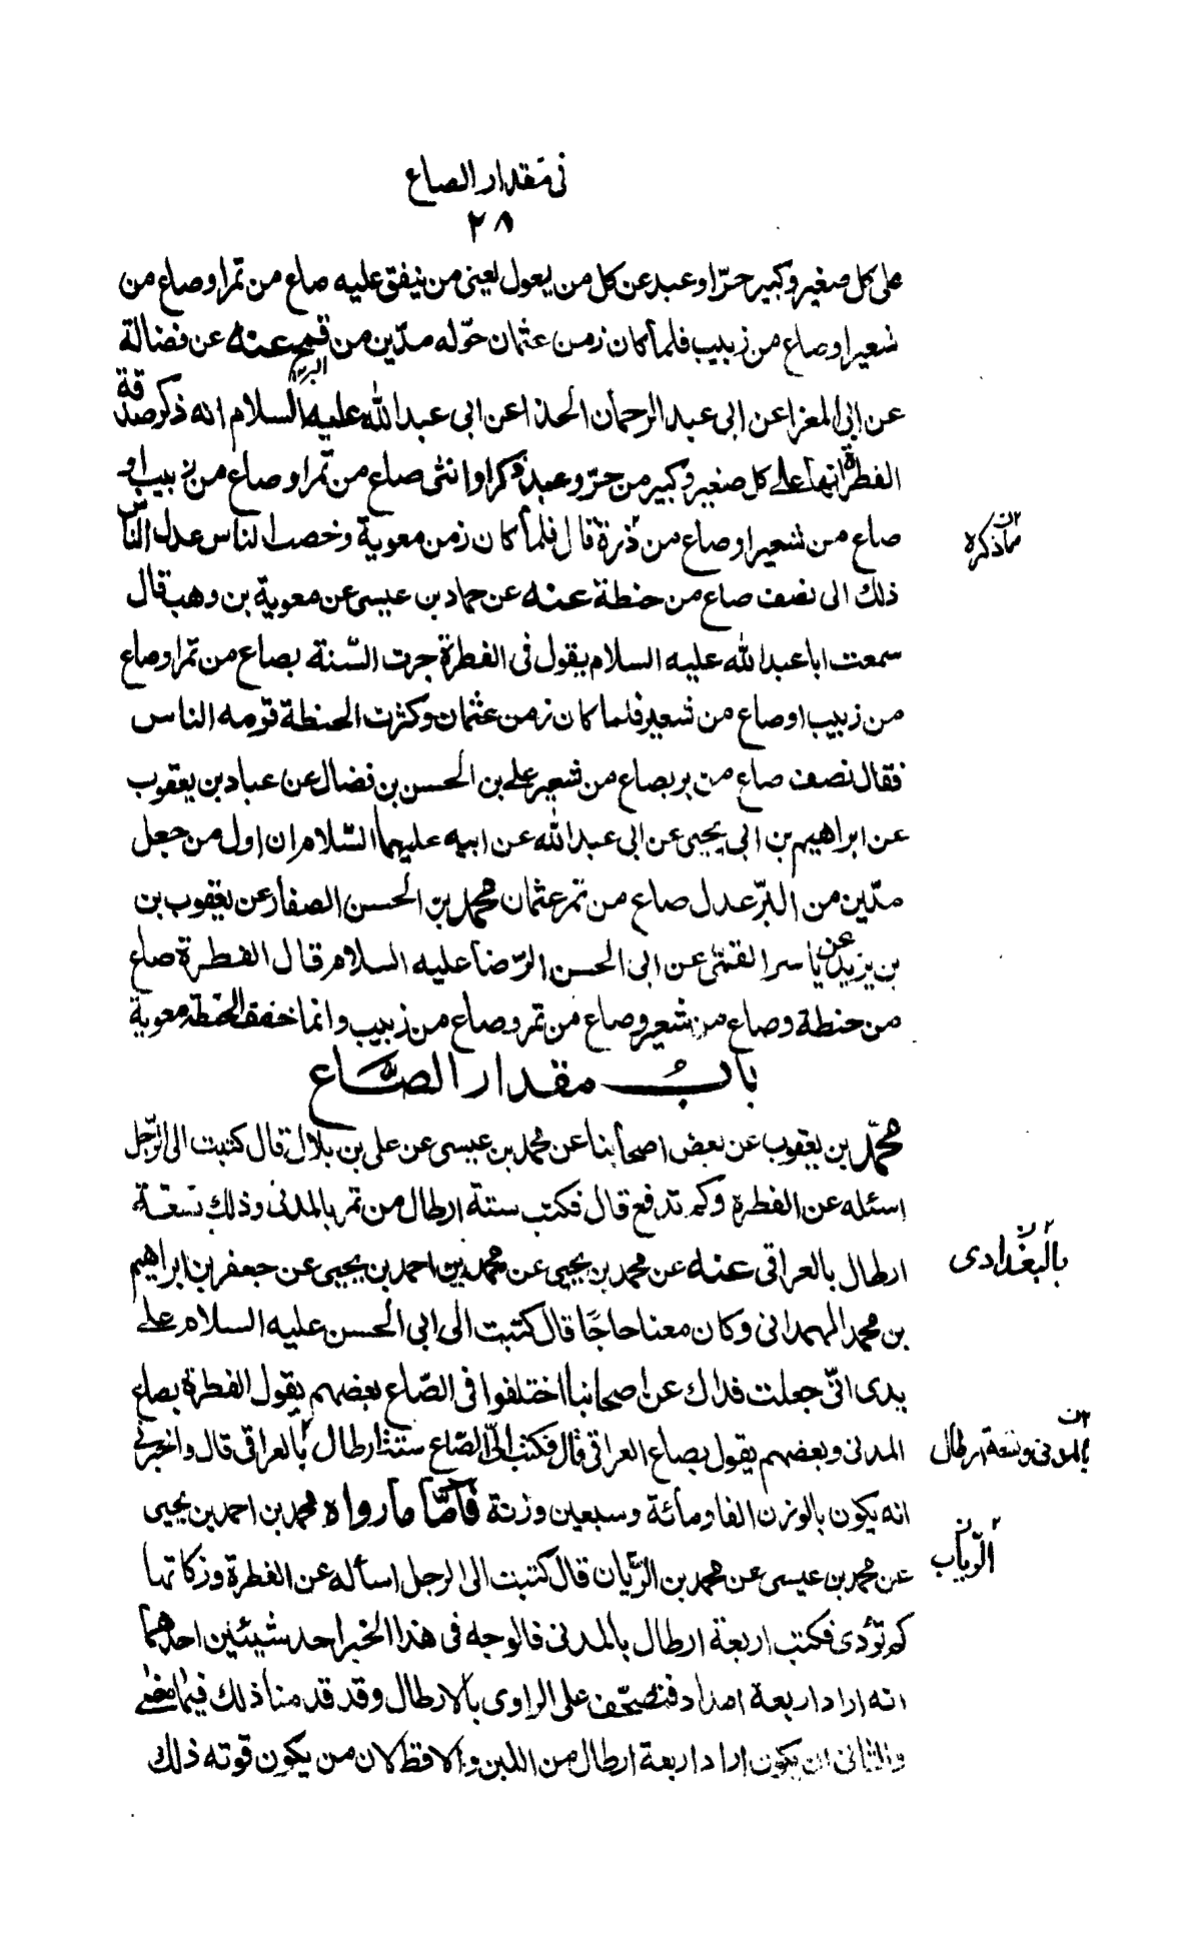 فى مقدار الصاع
٢٨
على كل صغير وكبير حرّ او عبد عن كل من يعول يعنى من ينفق عليه صاع من تمر او صاع من
شعير او صاع من زبيب فلما كان زمن عثمان حوّله مدّين من قمح عنه عن فضالة
عن ابى المغرا عن ابى عبد الرحمان الحذا عن ابى عبد الله عليه السلام انه ذكر صدقة
الفطرة انها على كل صغير وكبير من حرّ وعبد ذكر او انثى صاع من تمر او صاع من زبيب او
صاع من شعير او صاع من ذرة قال فلما كان زمن معوية وخصب الناس عدل الناس
مما ذكره
ذلك الى نصف صاع من حنطة عنه عن حماد بن عيسى عن معوية بن وهب قال
سمعت ابا عبد الله عليه السلام يقول فى الفطرة جرت السّنة بصاع من تمر او صاع
من زبيب او صاع من شعير فلما كان زمن عثمان وكثرت الحنطة قومه الناس
فقال نصف صاع من بر بصاع من شعير على بن الحسن بن فضال عن عباد بن يعقوب
عن ابراهيم بن ابى يحيى عن ابى عبد الله عن ابيه عليهما السّلام ان اول من جعل
مدّين من البرّ عدل صاع من تمر عثمان محمد بن الحسن الصفار عن يعقوب بن
بن يزيد عن ياسر القمّى عن ابى الحسن الرّضا عليه السلام قال الفطرة صاع
من حنطة وصاع من شعير وصاع من تمر وصاع من زبيب وانما خفف الحنطة معوية
باب مقدار الصاع
محمّد بن يعقوب عن بعض اصحابنا عن محمد بن عيسى عن على بن بلال قال كتبت الى الرّجل
اسئله عن الفطرة وكم تدفع قال فكتب ستة ارطال من تمر بالمدنى وذلك تسعة
بالبغدادى
ارطال بالعراقى عنه عن محمد بن يحيى عن محمد بن احمد بن يحيى عن جعفر بن ابراهيم
بن محمد الهمدانى وكان معنا حاجّا قال كتبت الى ابى الحسن عليه السلام على
يدى ابى جعلت فداك عن اصحابنا اختلفوا فى الصّاع بعضهم يقول الفطرة بصاع
المدنى وبعضهم يقول بصاع العراقى قال فكتب الىّ الصّاع ستة ارطال بالعراقى قال واخبرنى
بالمدنى وتسعة ارطال
انه يكون بالوزن الفا ومأئة وسبعين وزنة فأمّا ما رواه محمد بن احمد بن يحيى
عن محمد بن عيسى عن محمد بن الرّيّان قال كتبت الى الرجل اسأله عن الفطرة وزكاتها
كم تؤدى فكتب اربعة ارطال بالمدنى فالوجه فى هذا الخبر احد شيئين احدهما
انه اراد اربعة امداد فتصحّف على الراوى بالارطال وقد قدمنا ذلك فيما مضى
والثانى ان يكون اراد اربعة ارطال من اللبن والاقط لان من يكون قوته ذلك